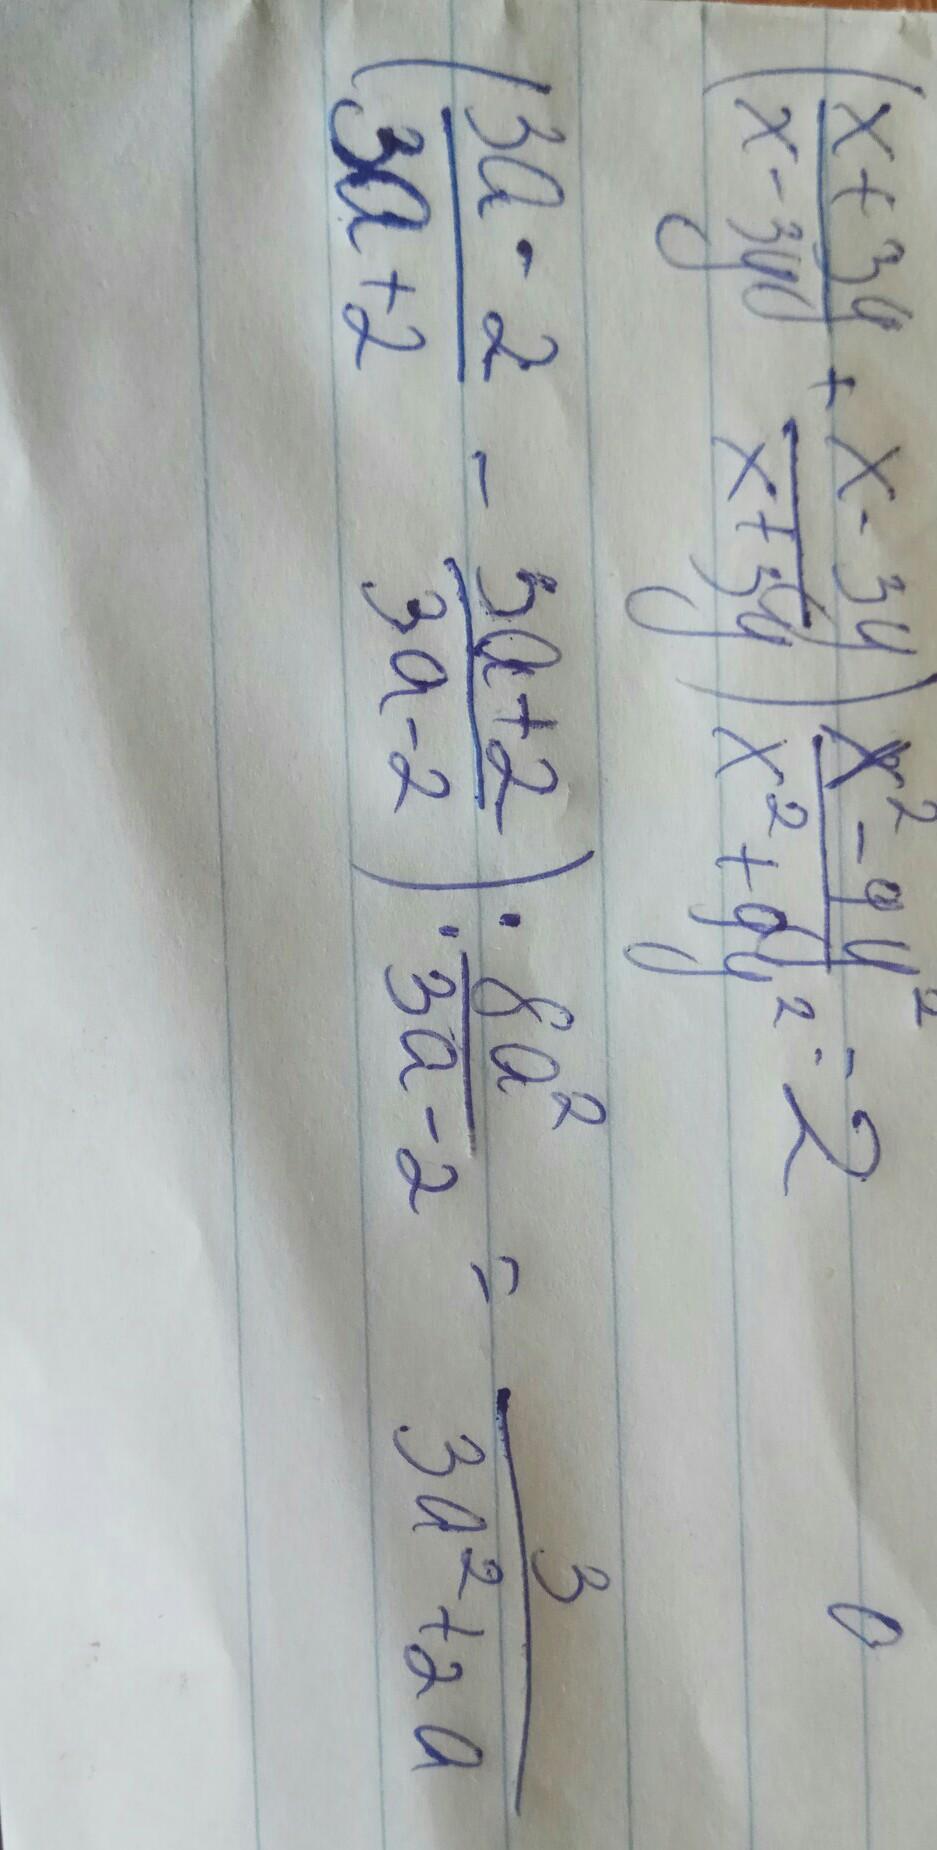 (x+3y/x-3y + x-3y/x+3y) x²-9y²/x²+9y² - 2
(3a-2/3a+2 - 3a+2/3a-2) : 8a²/3a-2 = 3/3a²+2a